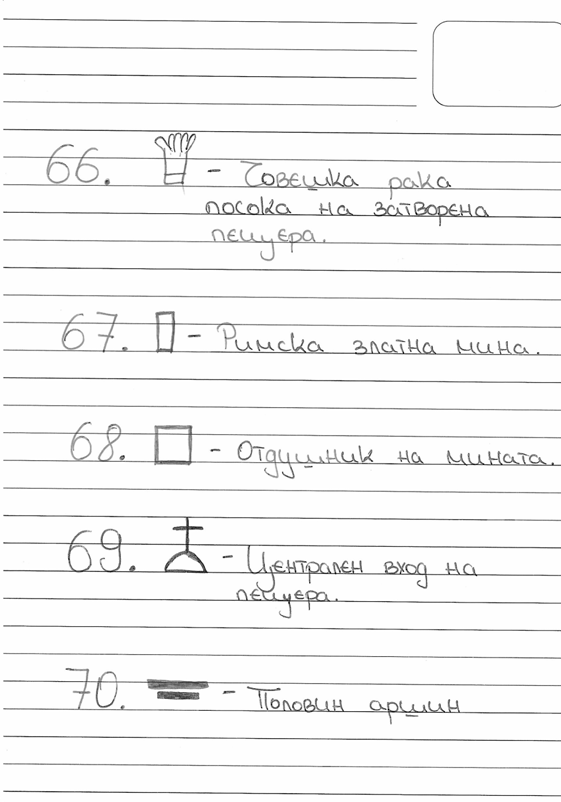 66. - Човешка рака
посока на затворена
пещера.
67. - Римска златна мина.
68. - Отдушник на мината.
69. - Централен вход на
пещера.
70. - Половин аршин